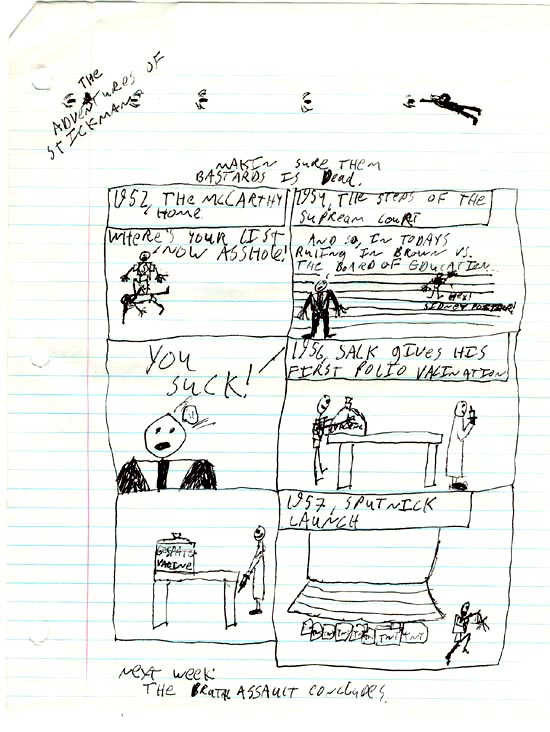 THE
ADVENTURES OF
STICKMAN
MAKIN SURE THEM
BASTARDS IS DEAD.
1952, THE MCCARTHY
HOME
WHERE'S YOUR LIST
NOW ASSHOLE!
1954, THE STEPS OF THE
SUPREAM COURT
AND SO, IN TODAYS
RULING IN BROWN VS.
THE BOARD OF EDUCATION...
HEY!
SIDNEY POITIER!
YOU
SUCK!
1956, SALK GIVES HIS
FIRST POLIO VACINATION
VACINE
1957, SPUTNICK
LAUNCH
TNT TNT
NEXT WEEK:
THE BRUTAL ASSAULT CONCLUDES.